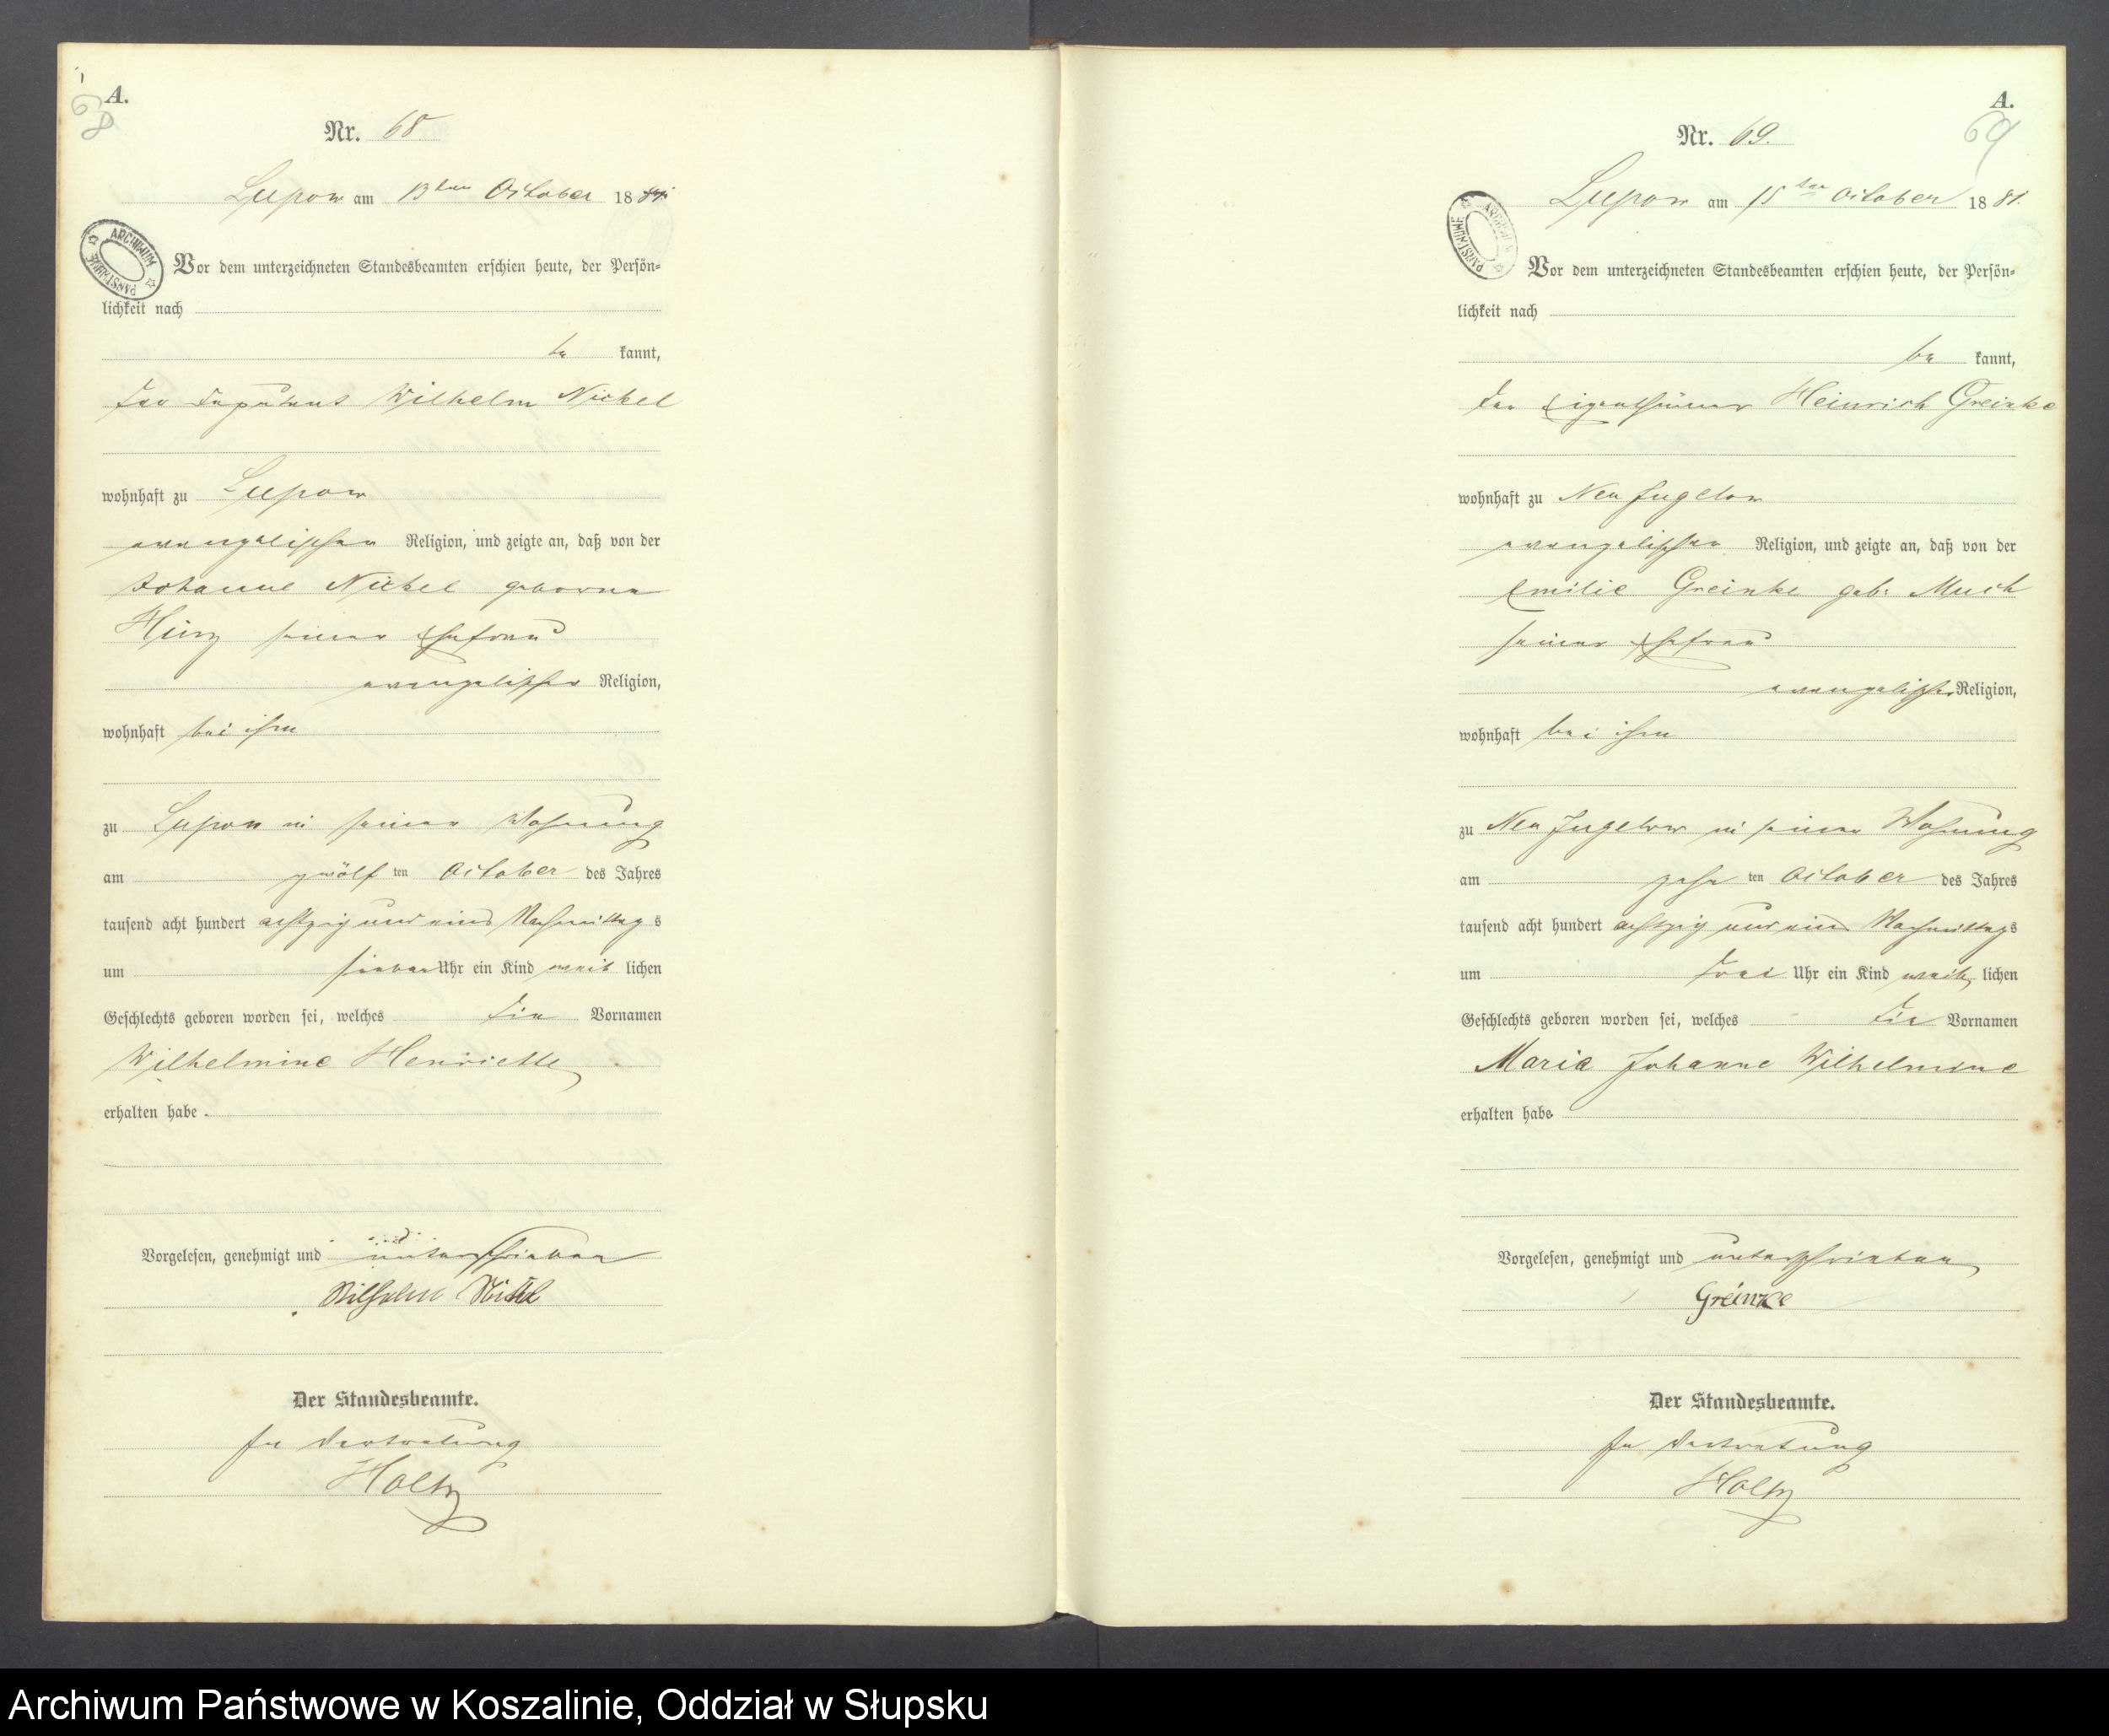 A.
68
Nr. 68
Lupow am 13ten October 1881.
ARCHIWUM PAŃSTWOWE
Vor dem unterzeichneten Standesbeamten erschien heute, der Persön-
lichkeit nach
be kannt,
der Deputant Wilhelm Nickel
wohnhaft zu Lupow
evangelischer Religion, und zeigte an, daß von der
Johanne Nickel geborne
seiner Ehefrau
evangelischer Religion,
wohnhaft bei ihm
zu Lupow in seiner Wohnung
am zwölf ten October des Jahres
tausend acht hundert achtzig und eins Nachmittag s
um sieben Uhr ein Kind weib lichen
Geschlechts geboren worden sei, welches die Vornamen
Wilhelmine Henriette
erhalten habe.
Vorgelesen, genehmigt und unterschrieben
Wilhelm Nickel
Der Standesbeamte.
In Vertretung
Holtz
A.
69
Nr. 69.
Lupow am 15ten October 1881.
ARCHIWUM PAŃSTWOWE
Vor dem unterzeichneten Standesbeamten erschien heute, der Persön-
lichkeit nach
be kannt,
der Eigenthümer Heinrich Greinke
wohnhaft zu Neu Jugelow
evangelischer Religion, und zeigte an, daß von der
Emilie Greinke geb: Much
seiner Ehefrau
evangelischer Religion,
wohnhaft bei ihm
zu Neu Jugelow in seiner Wohnung
am zehn ten October des Jahres
tausend acht hundert achtzig und eins Nachmittags
um drei Uhr ein Kind weib lichen
Geschlechts geboren worden sei, welches die Vornamen
Maria Johanne Wilhelmine
erhalten habe
Vorgelesen, genehmigt und unterschrieben
Greinke
Der Standesbeamte.
In Vertretung
Holtz
Archiwum Państwowe w Koszalinie, Oddział w Słupsku